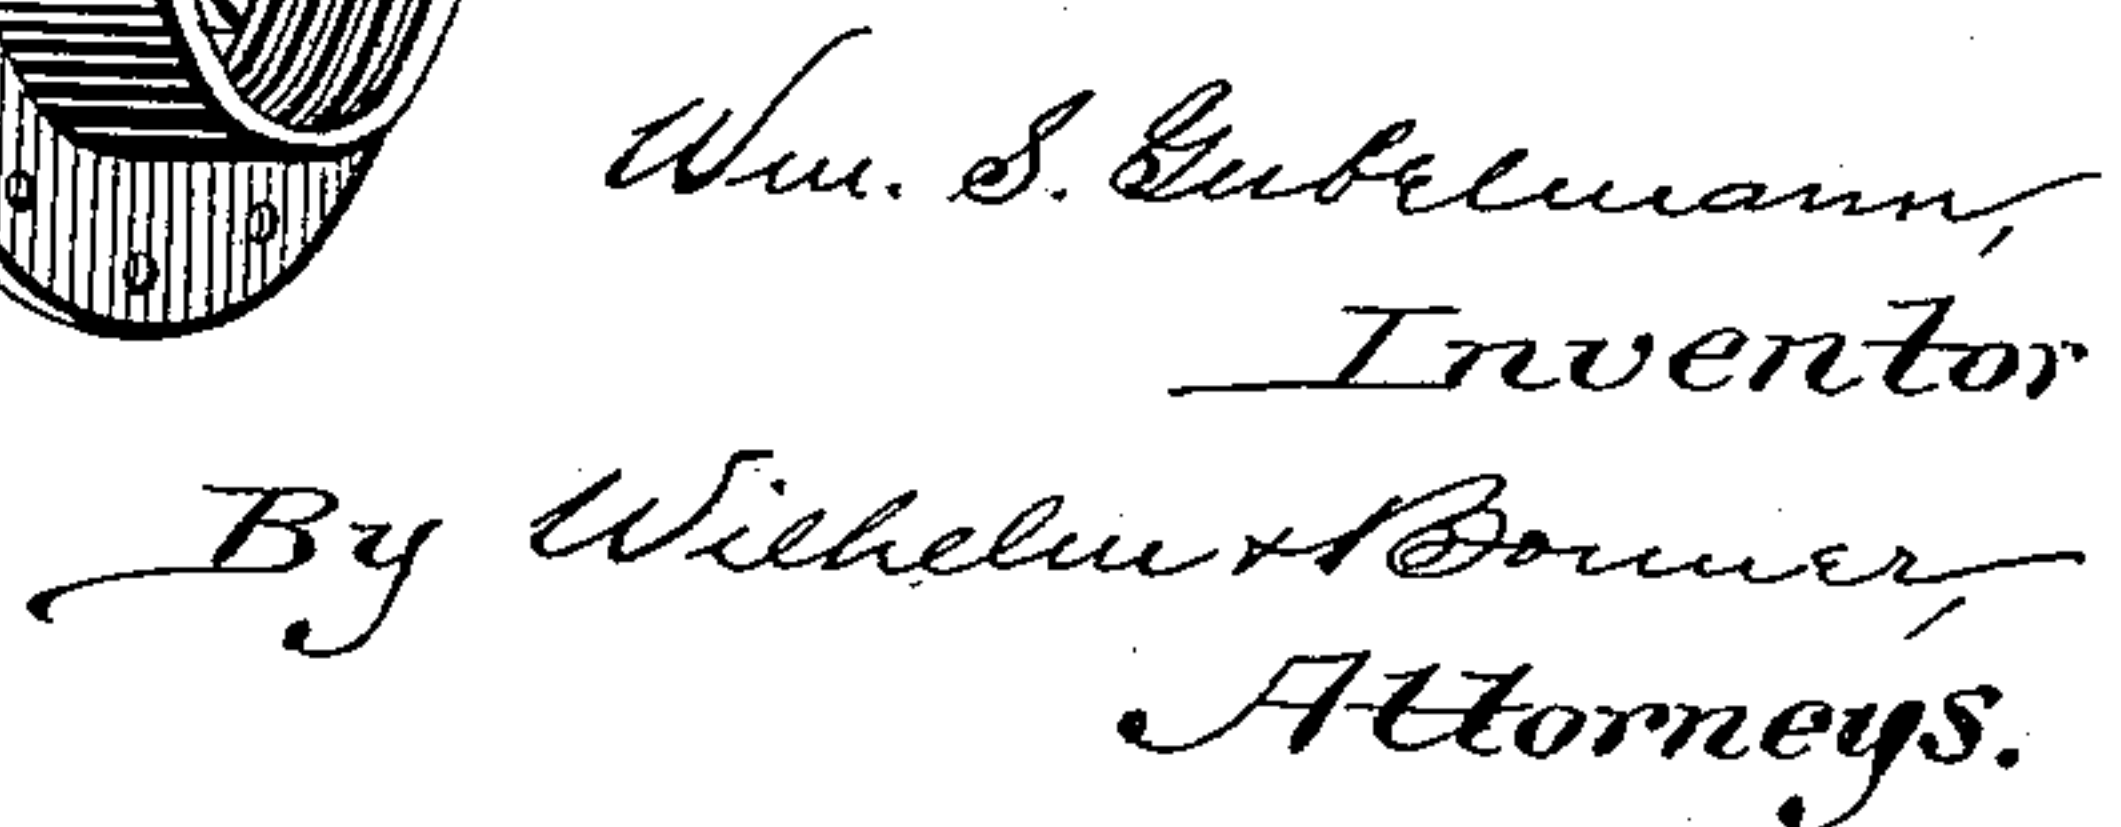 Wm. S. Gubelmann,
Inventor
By Wilhelm & Bonner,
Attorneys.